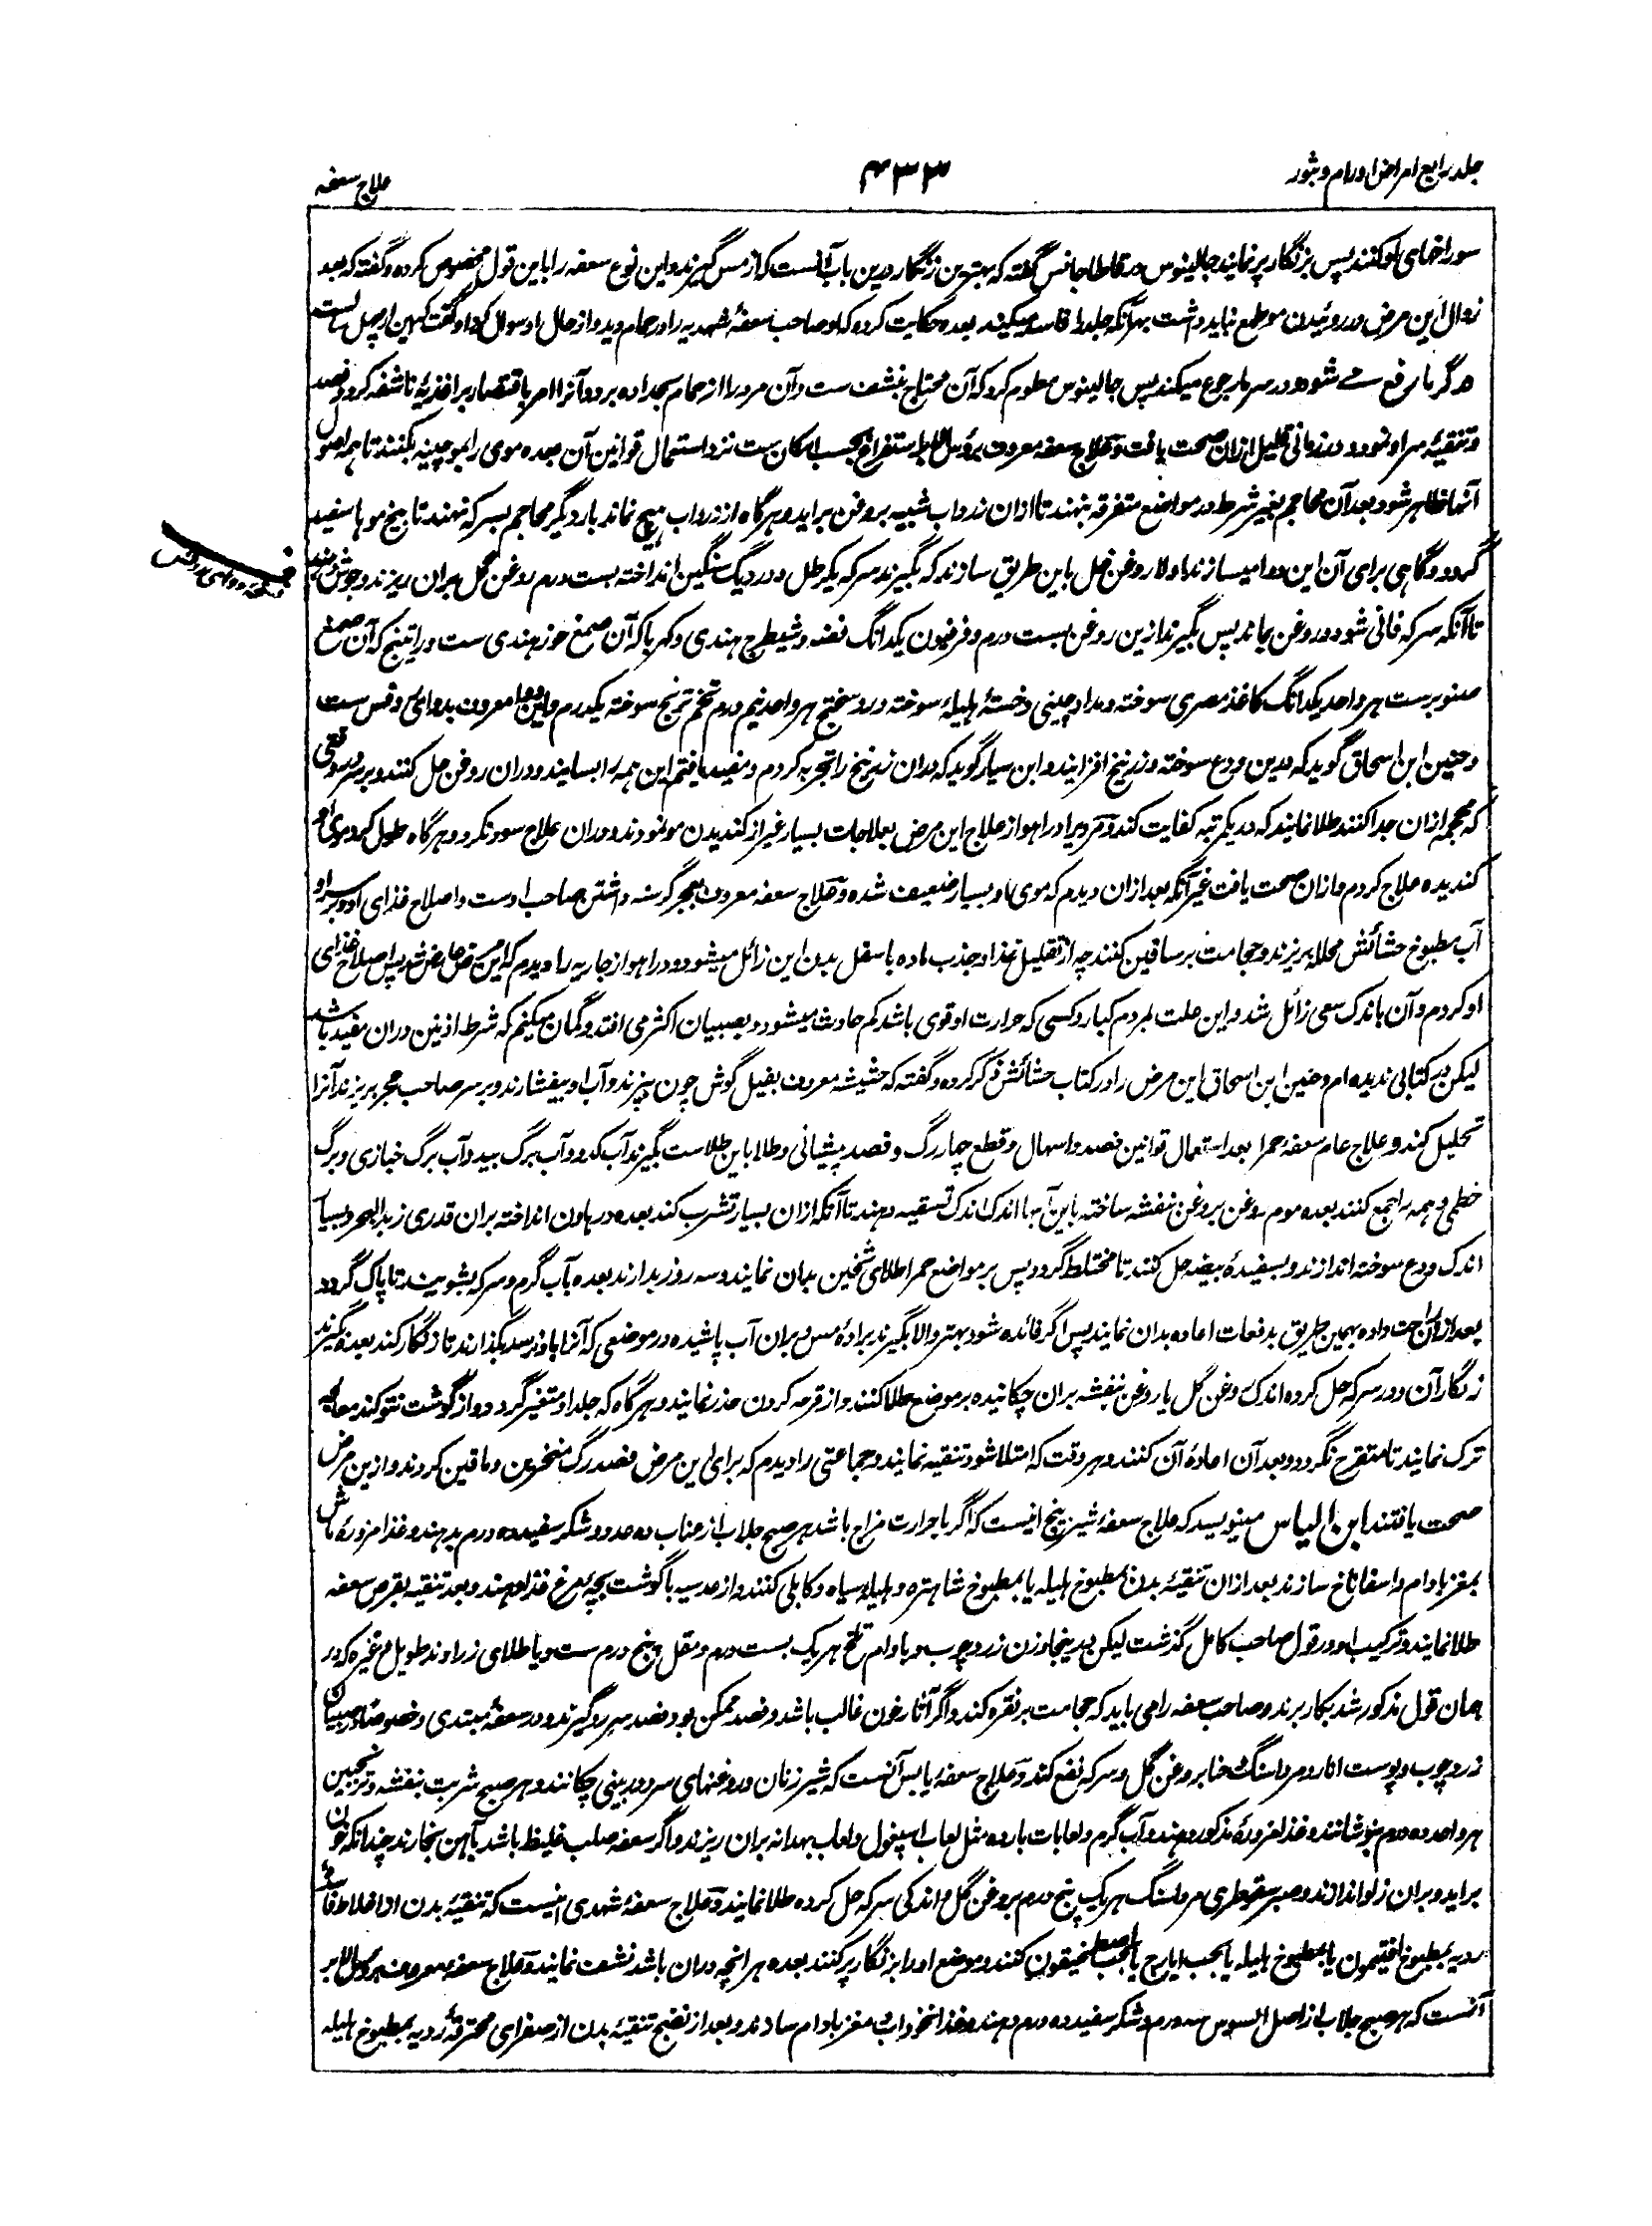 جلد رابع امراض اورام و بثور
۴۳۳
علاج سعفه
سوراخهای او کنند پس بزنگار پر نمایند جالینوس در قاطاجانس گفته که بهترین زنگار درین باب آنست که از مس گیرند و این نوع سعفه را باین قول مخصوص کرده و گفته که بعد
زوال این مرض در روئیدن مو طمع نباید داشت بهرآنکه جلد را فاسد میکند بعده حکایت کرده که او صاحب سعفهٔ شهدیه را در حمام دید و از حال او سوال کرد او گفت که این از چهل سال ست
در گرما رفع می شود و در سرما رجوع میکند پس جالینوس معلوم کرد که آن محتاج بنشف ست و آن مرد را از حمام بسجداده برد و آنرا امر باقتصار بر اغذیهٔ ناشفه کرد و فصد
و تنقیهٔ سر او نمود و در زمانی قلیل ازان صحت یافت و علاج سعفه معروف برؤس الابر استفراغ بحسب امکان ست نزد استعمال قوانین آن بعده موی را بموچینه بکنند تا همه اصول
آنها ظاهر شود بعد آن محاجم بغیر شرط در مواضع متفرقه بنهند تا ازان زرداب شبیه بروغن براید و هرگاه از زرداب هیچ نماند بار دیگر محاجم بسرکه نهند تا بیخ موها سفید
گردد و گاهی برای آن این دوا میسازند اولا روغن خل باین طریق سازند که بگیرند سرکه یکرطل و در دیگ سنگین انداخته بست درم روغن گل بران ریزند و بجوشانند
تا آنکه سرکه فانی شود و روغن بماند پس بگیرند ازین روغن بست درم و فرفیون یکدانگ فضه و شیطرج هندی و کهربا که آن صمغ حوز هندی ست و راتینج که آن صمغ
صنوبرست هر واحد یکدانگ کاغذ مصری سوخته و مداد چینی و خستهٔ هلیلهٔ سوخته و روسختج هر واحد نیم درم تخم ترنج سوخته یکدرم و این دوا معروف بدوای وقس ست
و حنین ابن اسحاق گوید که درین ودع سوخته و زرنیخ افزایند و ابن سیار گوید که دران زرنیخ را تجربه کردم و مفید یافتم این همه را بسایند و دران روغن حل کنند و بر سر وقتی
که محجم ازان جدا کنند طلا نمایند که در یکمرتبه کفایت کند و مردیرا در اهواز علاج این مرض بعلاجات بسیار غیر از کندیدن مو نمودند و دران علاج سود نکرد و هرگاه طول کرد موی او
کندیده علاج کردم و ازان صحت یافت غیر آنکه بعد ازان دیدم که موی او بسیار ضعیف شده و علاج سعفه معروف بعجر گرسنه داشتن صاحب اوست و اصلاح غذای او و بر سر او
آب مطبوخ حشائش محلله بریزند و حجامت بر ساقین کنند چه از تقلیل غذا و جذب ماده باسفل بدن این زائل میشود و در اهواز جاریه را دیدم که این مرض عارض شد پس اصلاح غذای
او کردم و آن باندک سعی زائل شد و این علت بمردم کبار و کسی که حرارت او قوی باشد کم حادث میشود و بصبیان اکثر می افتد و گمان میکنم که شرط اذنین دران مفید باشد
لیکن در کتابی ندیده ام و حنین ابن اسحاق این مرض را در کتاب حشائش ذکر کرده و گفته که حشیشه معروف بفیل گوش چون بپزند و آب او بیفشارند و بر سر صاحب عجر بریزند آنرا
تحلیل کند و علاج عام سعفه حمرا بعد استعمال قوانین فصد و اسهال و قطع چهار رگ و فصد پیشانی و طلا باین طلاست بگیرند آب کدو و آب برگ بید و آب برگ خبازی و برگ
خطمی و همه را جمع کنند بعده موم روغن بروغن بنفشه ساخته باین آبها اندک اندک تسقیه دهند تا آنکه ازان بسیار تشرب کند بعده در هاون انداخته بران قدری زبد البحر و بسیار
اندک ودع سوخته اندازند و بسفیدهٔ بیضه حل کنند تا مختلط گردد پس بر مواضع حمرا طلای ثخین بدان نمایند و سه روز بدارند بعده بآب گرم و سرکه بشویند تا پاک گردد
بعد ازان راحت داده بهمین طریق بدفعات اعاده بدان نمایند پس اگر فائده شود بهتر و الا بگیرند برادهٔ مس و بران آب پاشیده در موضعی که آنرا باد نرسد بگذارند تا زنگار کند بعده بگیرند
زنگار آن و در سرکه حل کرده اندک روغن گل یا روغن بنفشه بران چکانیده بر موضع طلا کنند و از قرحه کردن حذر نمایند و هرگاه که جلد او متغیر گردد و از گوشت نتو کند معالجه
ترک نمایند تا متقرح نگردد و بعد آن اعادهٔ آن کنند و هر وقت که امتلا شود تنقیه نمایند و جماعتی را دیدم که برای این مرض فصد رگ منخرین و ماقین کردند و ازین مرض
صحت یافتند ابن الیاس مینویسد که علاج سعفهٔ شیرینج اینست که اگر با حرارت مزاج باشد هر صبح جلاب از عناب ده عدد و شکر سفید ده درم بدهند و غذا مزورهٔ ماش
بمغز بادام و اسفاناخ سازند بعد ازان تنقیهٔ بدن بمطبوخ هلیله یا بمطبوخ شاهتره و هلیله سیاه و کابلی کنند و از عدسیه با گوشت بچهٔ مرغ غذا دهند و بعد تنقیه بقرص سعفه
طلا نمایند و ترکیب او در قول صاحب کامل گذشت لیکن درینجا وزن زردچوب و بادام تلخ هر یک بست درم و مقل پنج درم ست و یا طلای زراوند طویل وغیره که در
همان قول مذکور شد بکار برند و صاحب سعفه را می باید که حجامت بر نقره کند و اگر آثار خون غالب باشد و فصد ممکن بود فصد سررو گیرند و در سعفهٔ مبتدی و خصوصاً در صبیان
زردچوب و پوست انار و مرداسنگ و حنا بروغن گل و سرکه نفع کند و علاج سعفهٔ یابس آنست که شیر زنان و روغنهای سرد در بینی چکانند و هر صبح شربت بنفشه و ترنجبین
هر واحد ده درم بنوشانند و غذا مزورهٔ مذکور دهند و آب گرم و لعابات بارده مثل لعاب اسپغول و لعاب بهدانه بران ریزند و اگر سعفه صلب غلیظ باشد بآهن بخارند چندانکه خون
براید و بران زلو اندازند و صبر سقوطری مرداسنگ هر یک پنج درم بروغن گل و اندکی سرکه حل کرده طلا نمایند و علاج سعفهٔ شهدی اینست که تنقیهٔ بدن از اخلاط
ردیه بمطبوخ افتیمون یا بمطبوخ هلیله یا بحب ایارج یا بحب اصطمخیقون کنند و موضع او را بزنگار پر کنند بعده هر انچه دران باشد نشف نمایند و علاج سعفه معروف برؤس الابر
آنست که هر صبح جلاب از اصل السوس سه درم و شکر سفید ده درم دهند و غذا نخوداب و مغز بادام سازند و بعد از نضج تنقیهٔ بدن از صفرای محترقهٔ ردیه بمطبوخ هلیله